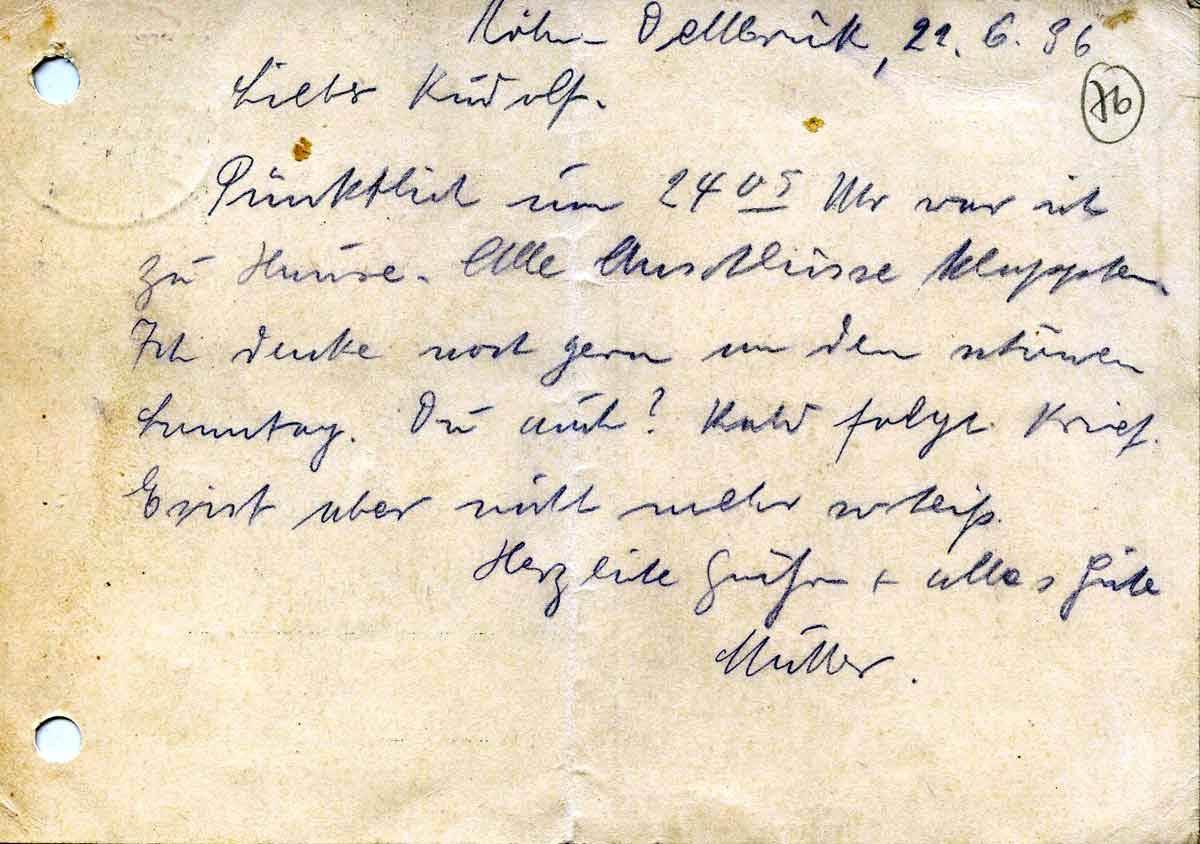 Köln-Dellbrück, 22. 6. 36
76
Lieber Rudolf.
Pünktlich um 24 05 Uhr war ich
zu Hause. Alle Anschlüsse klappten.
Ich denke noch gern an den schönen
Sonntag. Du auch? Bald folgt Brief.
Es ist aber nicht mehr so heiß.
Herzliche Grüße + alles Gute
Mutter.